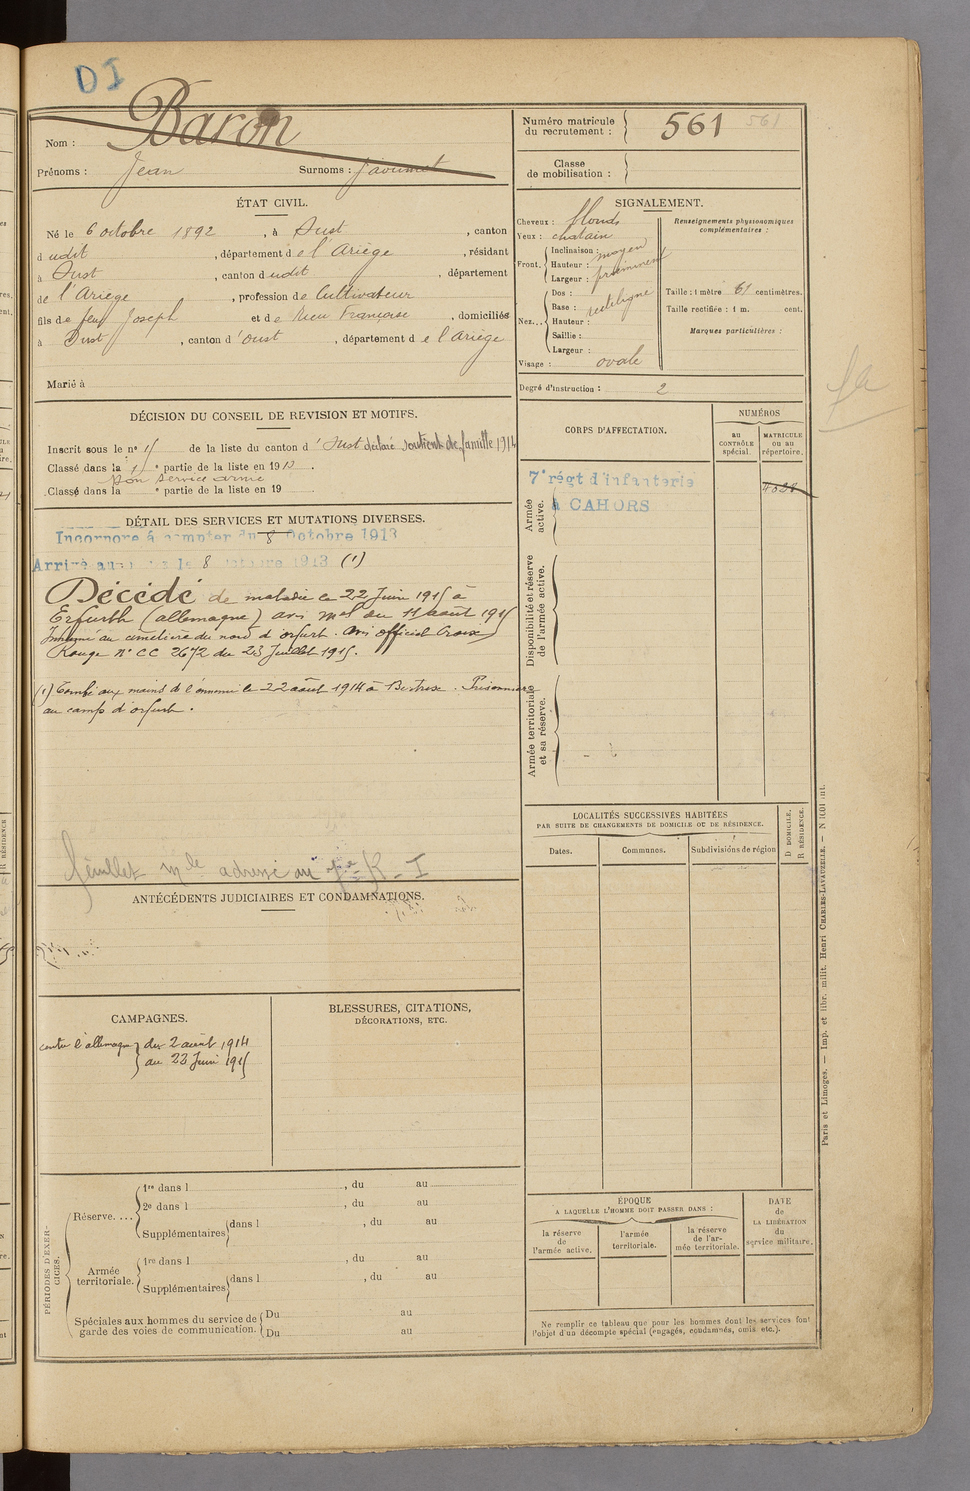 DI
Nom : Baron
Prénoms : Jean Surnoms :
ÉTAT CIVIL.
Né le 6 octobre 1892, à Oust, canton
d udit, département de l'Ariège, résidant
à Oust, canton d udit, département
de l'Ariège, profession de Cultivateur
fils de feu Joseph et de Françoise, domiciliés
à Oust, canton d'oust, département de l'Ariège
Marié à
DÉCISION DU CONSEIL DE REVISION ET MOTIFS.
Inscrit sous le n° 15 de la liste du canton d'Oust déclaré soutient de famille 1914
Classé dans la 1e partie de la liste en 19
Bon service armé
Classé dans la e partie de la liste en 19
DÉTAIL DES SERVICES ET MUTATIONS DIVERSES.
Incorporé à compter du 8 Octobre 1913
Arrivé au corps le 8 octobre 1913 (1)
Décédé de maladie le 22 Juin 1915 à
Erfurth (allemagne) avis mel du 11 août 1915
Inhumé au cimetière du nord d'orfurt. Avis officiel Croix
Rouge N° CC 2672 du 23 Juillet 1915.
(1) Tombé aux mains de l'ennemi le 22 août 1914 à Bertrix. Prisonnier
au camp d'orfurth.
feuillet mle adressé au
ANTÉCÉDENTS JUDICIAIRES ET CONDAMNATIONS.
CAMPAGNES.
contre l'allemagne du 2 août 1914
au 23 Juin 1915
BLESSURES, CITATIONS,
DÉCORATIONS, ETC.
PÉRIODES D'EXERCICES.
Réserve....
1re dans l , du au
2e dans l , du au
Supplémentaires dans l , du au
Armée territoriale.
1re dans l , du au
Supplémentaires dans l , du au
Spéciales aux hommes du service de
garde des voies de communication.
Du au
Du au
Numéro matricule
du recrutement : 561 561
Classe
de mobilisation :
SIGNALEMENT.
Cheveux : blonds
Yeux : chatain
Front.
Inclinaison : moyen
Hauteur : proéminent
Largeur :
Nez...
Dos : rectiligne
Base :
Hauteur :
Saillie :
Largeur :
Visage : ovale
Renseignements physionomiques
complémentaires :
Taille : 1 mètre 61 centimètres.
Taille rectifiée : 1 m. cent.
Marques particulières :
Degré d'instruction : 2
CORPS D'AFFECTATION.
NUMÉROS
au
CONTRÔLE
spécial.
MATRICULE
ou au
répertoire.
Armée
active.
7e régt d'infanterie
à CAHORS
Disponibilité et réserve
de l'armée active.
Armée territoriale
et sa réserve.
LOCALITÉS SUCCESSIVES HABITÉES
PAR SUITE DE CHANGEMENTS DE DOMICILE OU DE RÉSIDENCE.
Dates.
Communes.
Subdivisions de région
D DOMICILE.
R RÉSIDENCE.
ÉPOQUE
A LAQUELLE L'HOMME DOIT PASSER DANS :
la réserve
de
l'armée active.
l'armée
territoriale.
la réserve
de l'ar-
mée territoriale.
DATE
de
LA LIBÉRATION
du
service militaire.
Ne remplir ce tableau que pour les hommes dont les services font
l'objet d'un décompte spécial (engagés, condamnés, omis etc.).
Paris et Limoges. — Imp. et libr. milit. Henri CHARLES-LAVAUZELLE. —